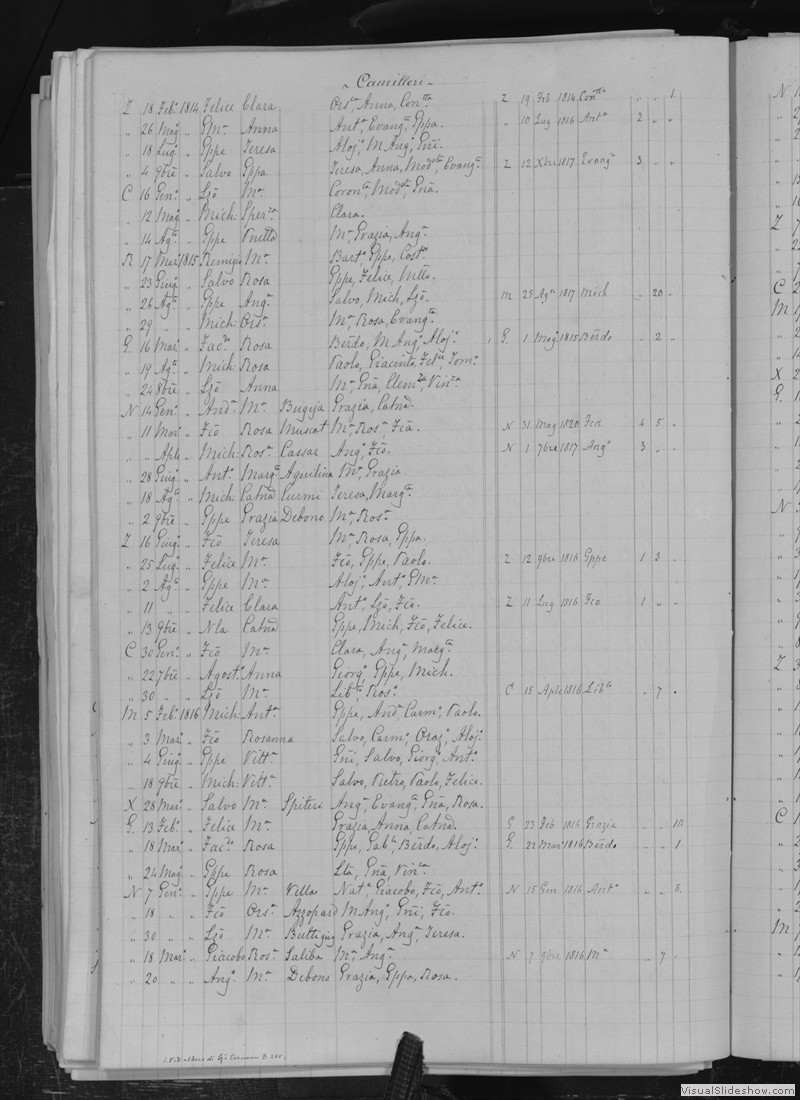 Camilleri
Z 18 Feb.o 1814 Felice Clara Ors.la, Anna, Con.tta Z 19 Feb 1814 Con.tta " " 1
" 26 Mag.o " Em.o Anna Ant.o, Evang.ta, Eppa. " 10 Lug 1816 Ant.o 2 " "
" 18 Lug.o " Eppe Teresa Aloj.o, M Ang.o, Gñi.
" 4 9bre " Salvo Eppa Teresa, Anna, Mod.sta, Evang.ta Z 12 Xbre 1817 Evang.ta 3 " "
C 16 Gen.o " Lzō M.a Coron.ta, Mod.sta, Gña.
" 12 Mag " Mich Sper.za Clara.
" 14 Ag.to " Eppe M.a, Grazia, Ang.a
R 17 Mar 1815 Remigio M.a Bart.o, Eppe, Cost.o
" 23 Giug " Salvo Rosa Eppe, Felice,
" 26 Ag.to " Eppe Ang.a Salvo, Mich, Lzō. M 25 Ag.to 1817 Mich " 20 "
" 29 " " Mich Ors.a M.a, Rosa, Evang.ta
G 16 Mar.o " Fac.do Rosa Bērdo, M Ang.o, Aloj.o G 1 Mag.o 1815 Bērdo " 2 "
" 19 Ag.to " Mich Rosa Paolo, Giacinto, Fel.ce, Tom.o
" 24 8bre " Lzō Anna M.a, Gña, Clem.za, Vin.za
N 14 Gen.o " And.a M.a Bugeja Grazia, Catnā.
" 11 Mar.o " Fcō Rosa Muscat M.a, Ros.a, Fca. N 31 Mag 1820 Fca 4 5 "
" " Aple " Mich Ros.a Cassar Ang.o, Fcō. N 1 7bre 1817 Ang.o 3 " "
" 28 Giug.o " Ant.o Marg.ta Aquilina M.a, Grazia.
" 18 Ag.to " Mich Catnā Curmi Teresa, Marg.ta
" 2 9bre " Eppe Grazia Debono M.a, Ros.a
Z 16 Giug.o " Fcō Teresa M.a, Rosa, Eppa.
" 25 Lug.o " Felice M.a Fcō, Eppe, Paolo. Z 12 9bre 1816 Eppe 1 3 "
" 2 Ag.to " Eppe M.a Aloj.o, Ant.o, Em.o
" 11 " " Felice Clara Ant.o, Lzō, Fcō. Z 11 Lug 1816 Fco 1 " "
" 13 9bre " Nla Catnā Eppe, Mich, Fcō, Felice.
C 30 Gen.o " Fcō M.a Clara, Ang.a, Marg.ta
" 22 7bre " Agost.o Anna Giorg.o, Eppe, Mich.
" 30 " " Lzō M.a Lib.ta, Ros.a C 15 Aple 1816 Lib.ta " 7 "
M 5 Feb.o 1816 Mich Ant.a Eppe, And.a, Carm.o, Paolo.
" 3 Mar.o " Fcō Rosanna Salvo, Carm.o, Oraz.o, Aloj.o
" 4 Giug.o " Eppe Vitt.a Gñi, Salvo, Giorg.o, Ant.o
" 18 9bre " Mich Vitt.a Salvo, Pietro, Paolo, Felice.
X 28 Mar.o " Salvo M.a Spiteri Ang.o, Evang.ta, Gña, Rosa.
G 13 Feb.o " Felice M.a Grazia, Anna, Catnā. G 23 Feb 1816 Grazia " " 10
" 18 Mar.o " Fac.do Rosa Eppe, Gab.le, Bērdo, Aloj.o G 22 Mar 1816 Bērdo " " 1
" 24 Mag.o " Eppe Rosa Gña, Vin.za
N 7 Gen.o " Eppe M.a Vella Nat.e, Giacobo, Fcō, Ant.o N 15 Gen 1816 Ant.o " " 8
" 18 " " Fcō Ors.a Azzopard M Ang.o, Gñi, Fcō.
" 30 " " Lzō M.a Buttigieg Grazia, Ang.a, Teresa.
" 18 Mar.o " Giacobo Ros.a Saliba M.a, Ang.a N 7 9bre 1816 M.a " 7 "
" 20 " " Ang.o M.a Debono Grazia, Eppa, Rosa.
VisualSlideshow.com